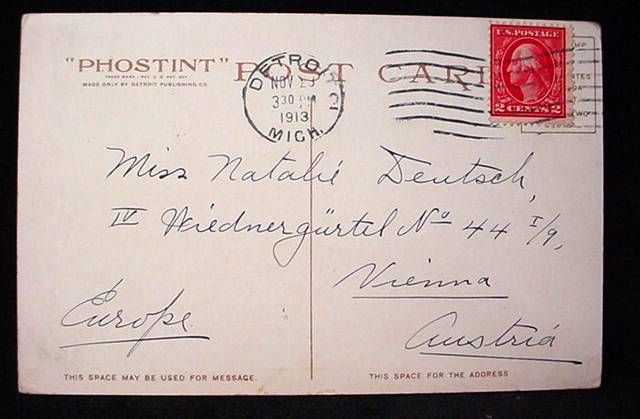 "PHOSTINT" POST CARD
TRADE MARK, REG. U.S. PAT. OFF.
MADE ONLY BY DETROIT PUBLISHING CO.
DETROIT
NOV 25
330 PM
2
1913
MICH.
U.S. POSTAGE
2 CENTS 2
Miss Natalie Deutsch,
IV Wiednergürtel No 44 I/9,
Vienna
Europe
Austria
THIS SPACE MAY BE USED FOR MESSAGE.
THIS SPACE FOR THE ADDRESS